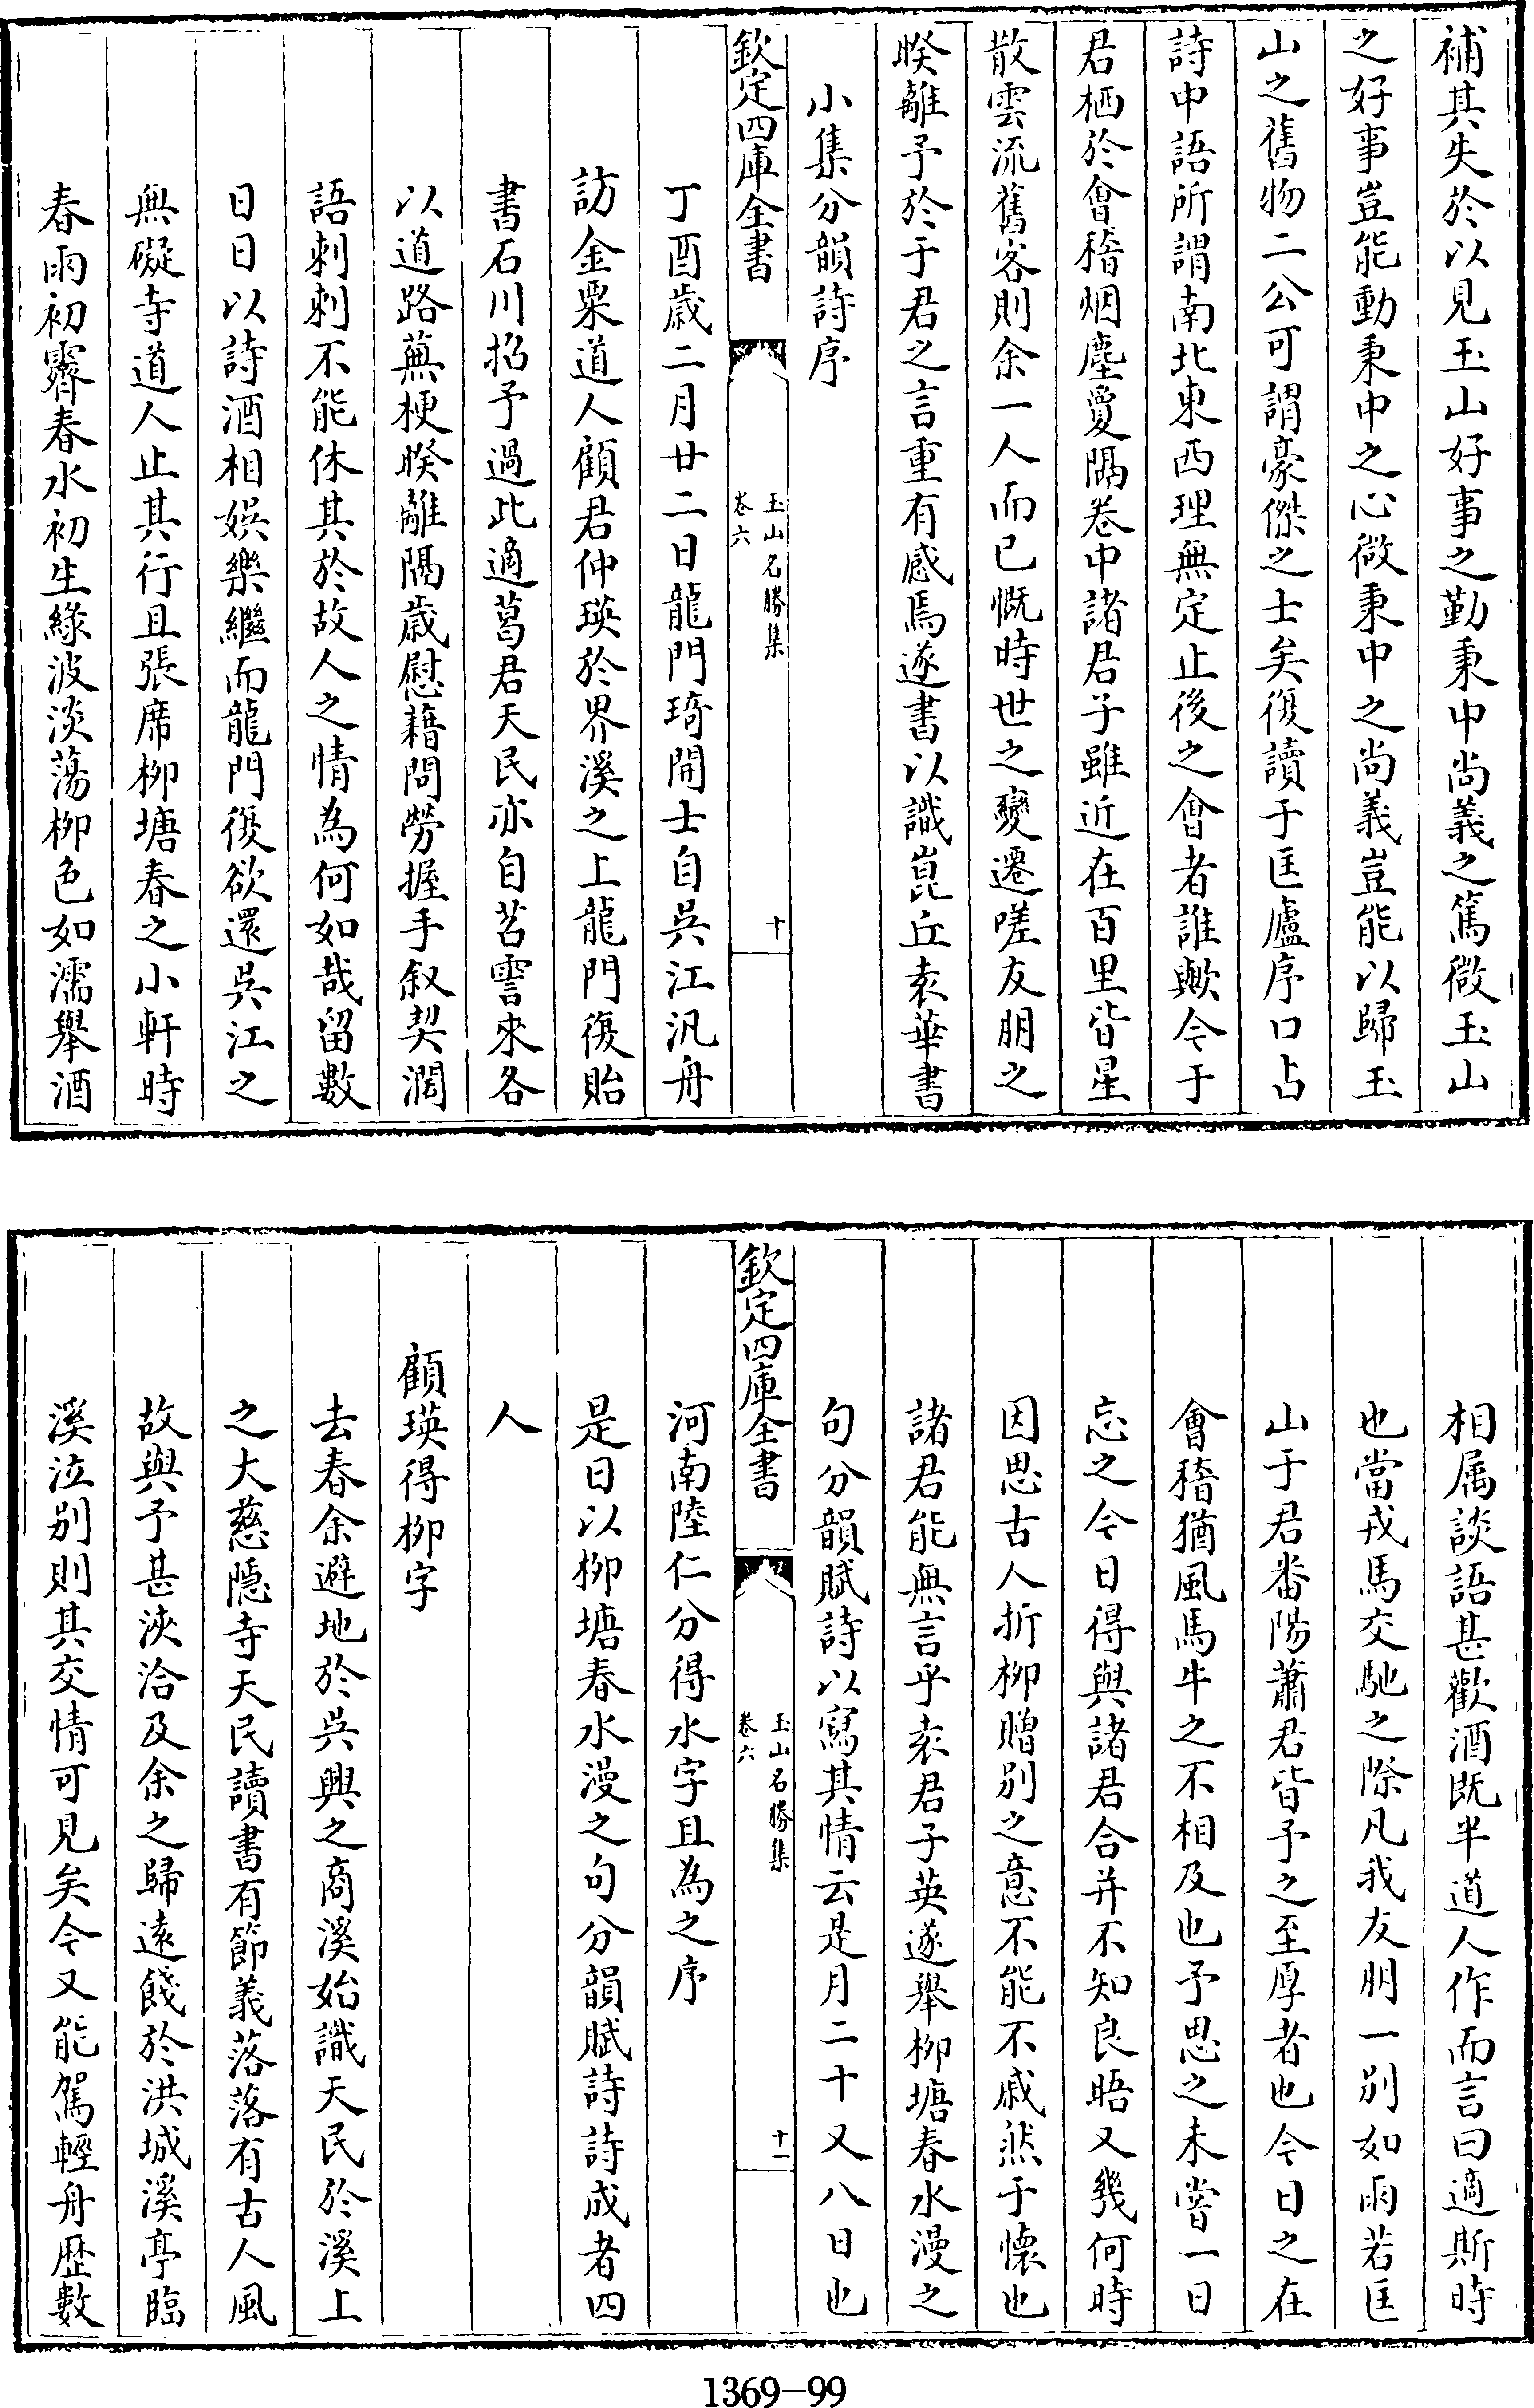 補其失於以見玉山好事之勤秉中尚義之篤微玉山
之好事豈能動秉中之心微秉中之尚義豈能以歸玉
山之舊物二公可謂豪傑之士矣復讀于匡廬序口占
詩中語所謂南北東西理無定止後之會者誰歟今于
君栖於會稽烟塵敻隔卷中諸君子雖近在百里皆星
散雲流舊客則余一人而已慨時世之變遷嗟友朋之
暌離予於于君之言重有感焉遂書以識崑丘袁華書
小集分韻詩序
欽定四庫全書
玉山名勝集
卷六
十
丁酉歲二月廿二日龍門琦開士自吳江汎舟
訪金粟道人顧君仲瑛於界溪之上龍門復貽
書石川招予過此適葛君天民亦自苕霅來各
以道路蕪梗暌離隔歲慰藉問勞握手叙契濶
語刺刺不能休其於故人之情為何如哉留數
日日以詩酒相娛樂繼而龍門復欲還吳江之
無礙寺道人止其行且張席栁塘春之小軒時
春雨初霽春水初生綠波淡蕩栁色如濡舉酒
相屬談語甚歡酒既半道人作而言曰適斯時
也當戎馬交馳之際凡我友朋一别如雨若匡
山于君番陽蕭君皆予之至厚者也今日之在
會稽猶風馬牛之不相及也予思之未嘗一日
忘之今日得與諸君合并不知良晤又幾何時
因思古人折栁贈别之意不能不戚然于懷也
諸君能無言乎袁君子英遂舉栁塘春水漫之
句分韻賦詩以寫其情云是月二十又八日也
欽定四庫全書
玉山名勝集
卷六
十一
河南陸仁分得水字且為之序
是日以栁塘春水漫之句分韻賦詩詩成者四
人
顧瑛得栁字
去春余避地於吳興之商溪始識天民於溪上
之大慈隠寺天民讀書有節義落落有古人風
故與予甚浹洽及余之歸遠餞於洪城溪亭臨
溪泣别則其交情可見矣今又能駕輕舟歴數
1369-99